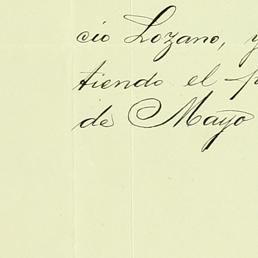 cio Lozano, y
tiendo el p
de Mayo